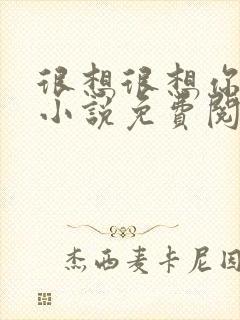 很想很想你
小说免费阅
杰西麦卡尼因